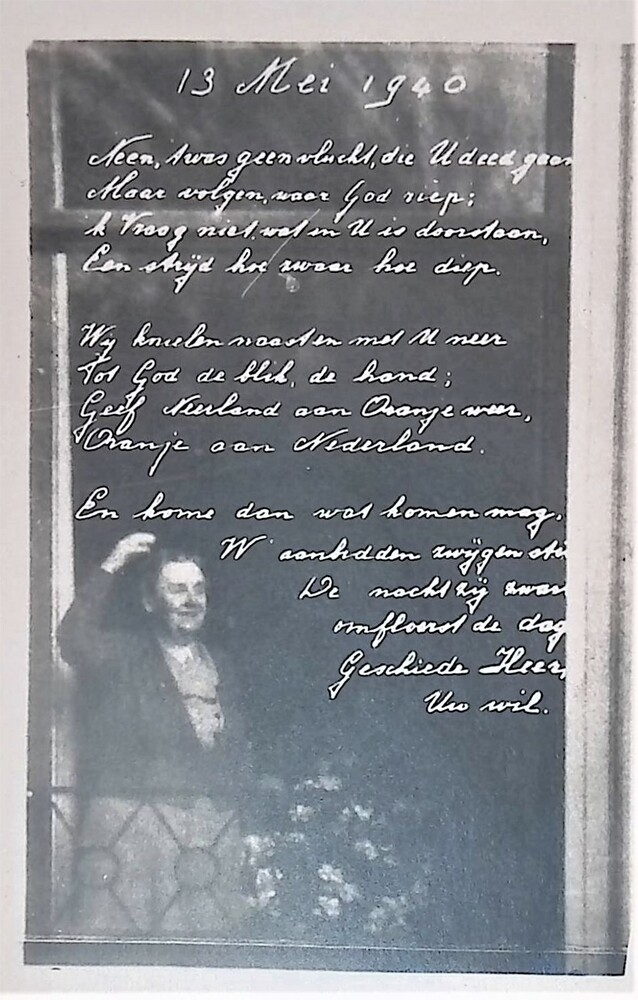 13 Mei 1940
Neen, 't was geen vlucht, die U deed gaan
Maar volgen, waar God riep;
'k Vraag niet wat in U is doorstaan,
Een strijd hoe zwaar hoe diep.
Wij knielen naast en met U neer
Tot God de blik, de hand;
Geef Neerland aan Oranje weer,
Oranje aan Nederland.
En kome dan wat komen mag.
W' aanbidden zwijgen
De nacht zij
omfloerst de dag
Geschiede Heer,
Uw wil.